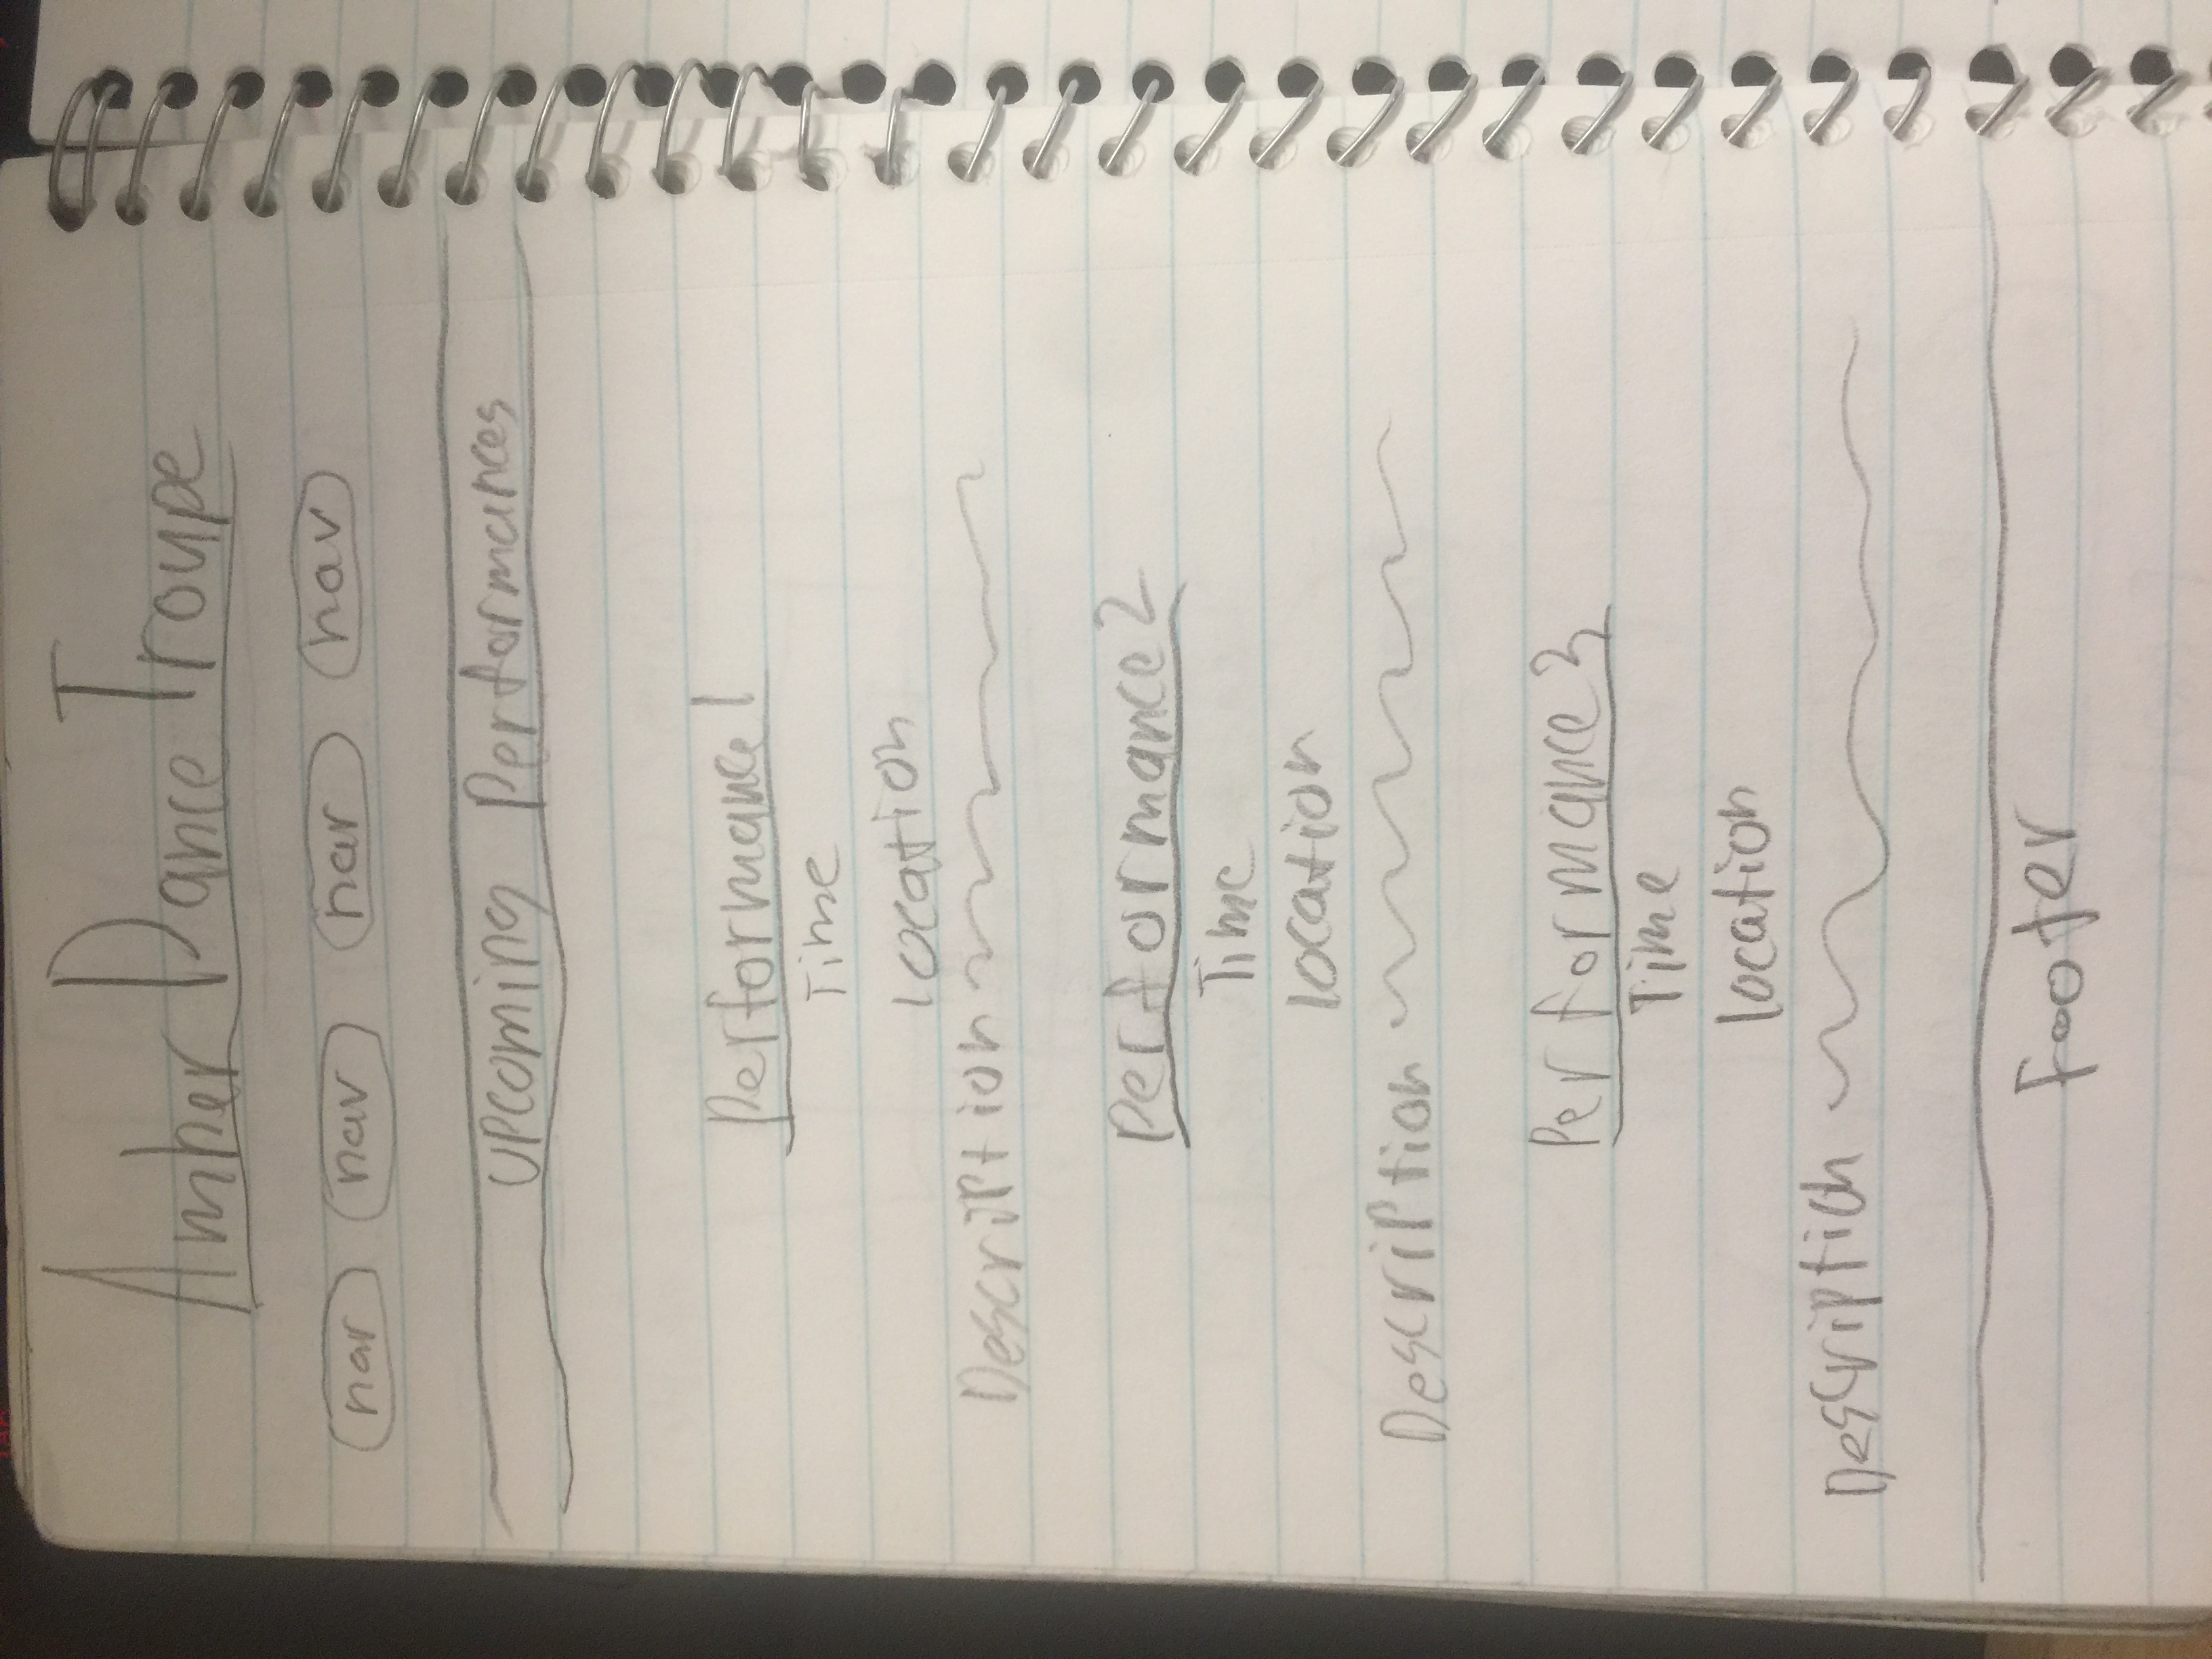 Amber Dance Troupe
nav nav nav nav
Upcoming Performances
Performance 1
Time
Location
Description
Performance 2
Time
location
Description
Performance 3
Time
location
Description
Footer